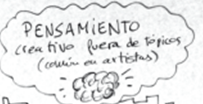 PENSAMIENTO
creativo fuera de tópicos
(común en artistas)